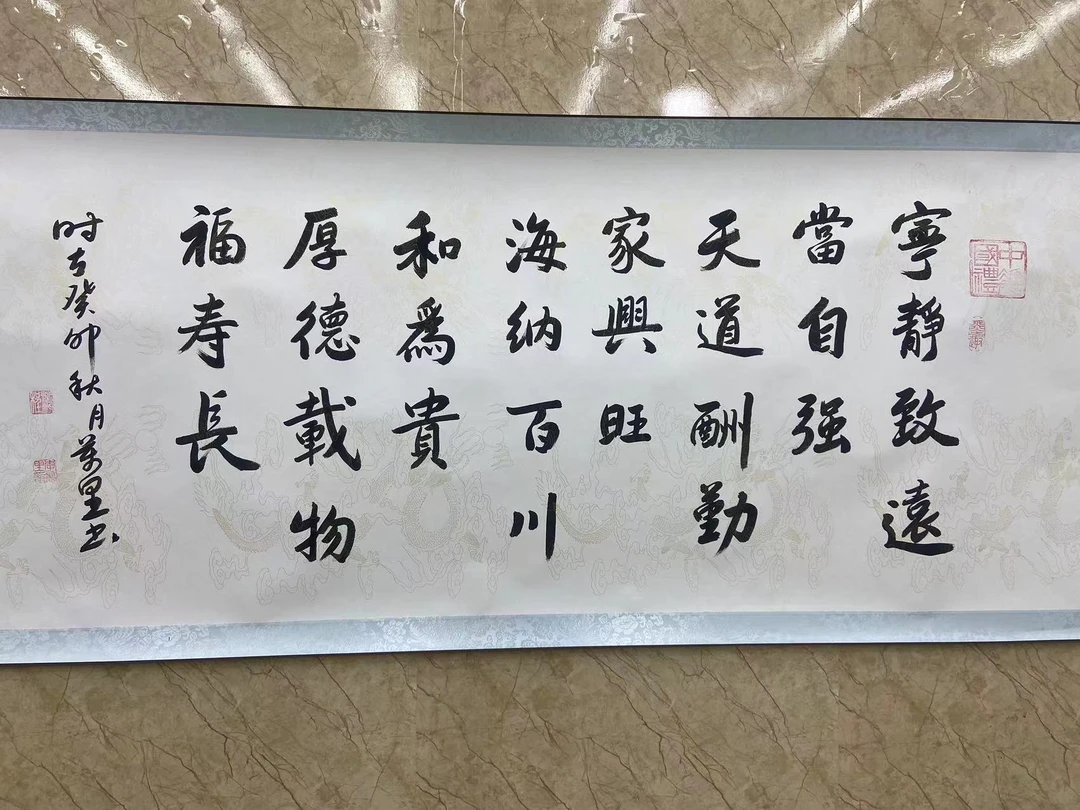 中國禮
寧靜致遠
當自强
天道酬勤
家興旺
海纳百川
和為貴
厚德載物
福寿長
时在癸卯秋月萬里书